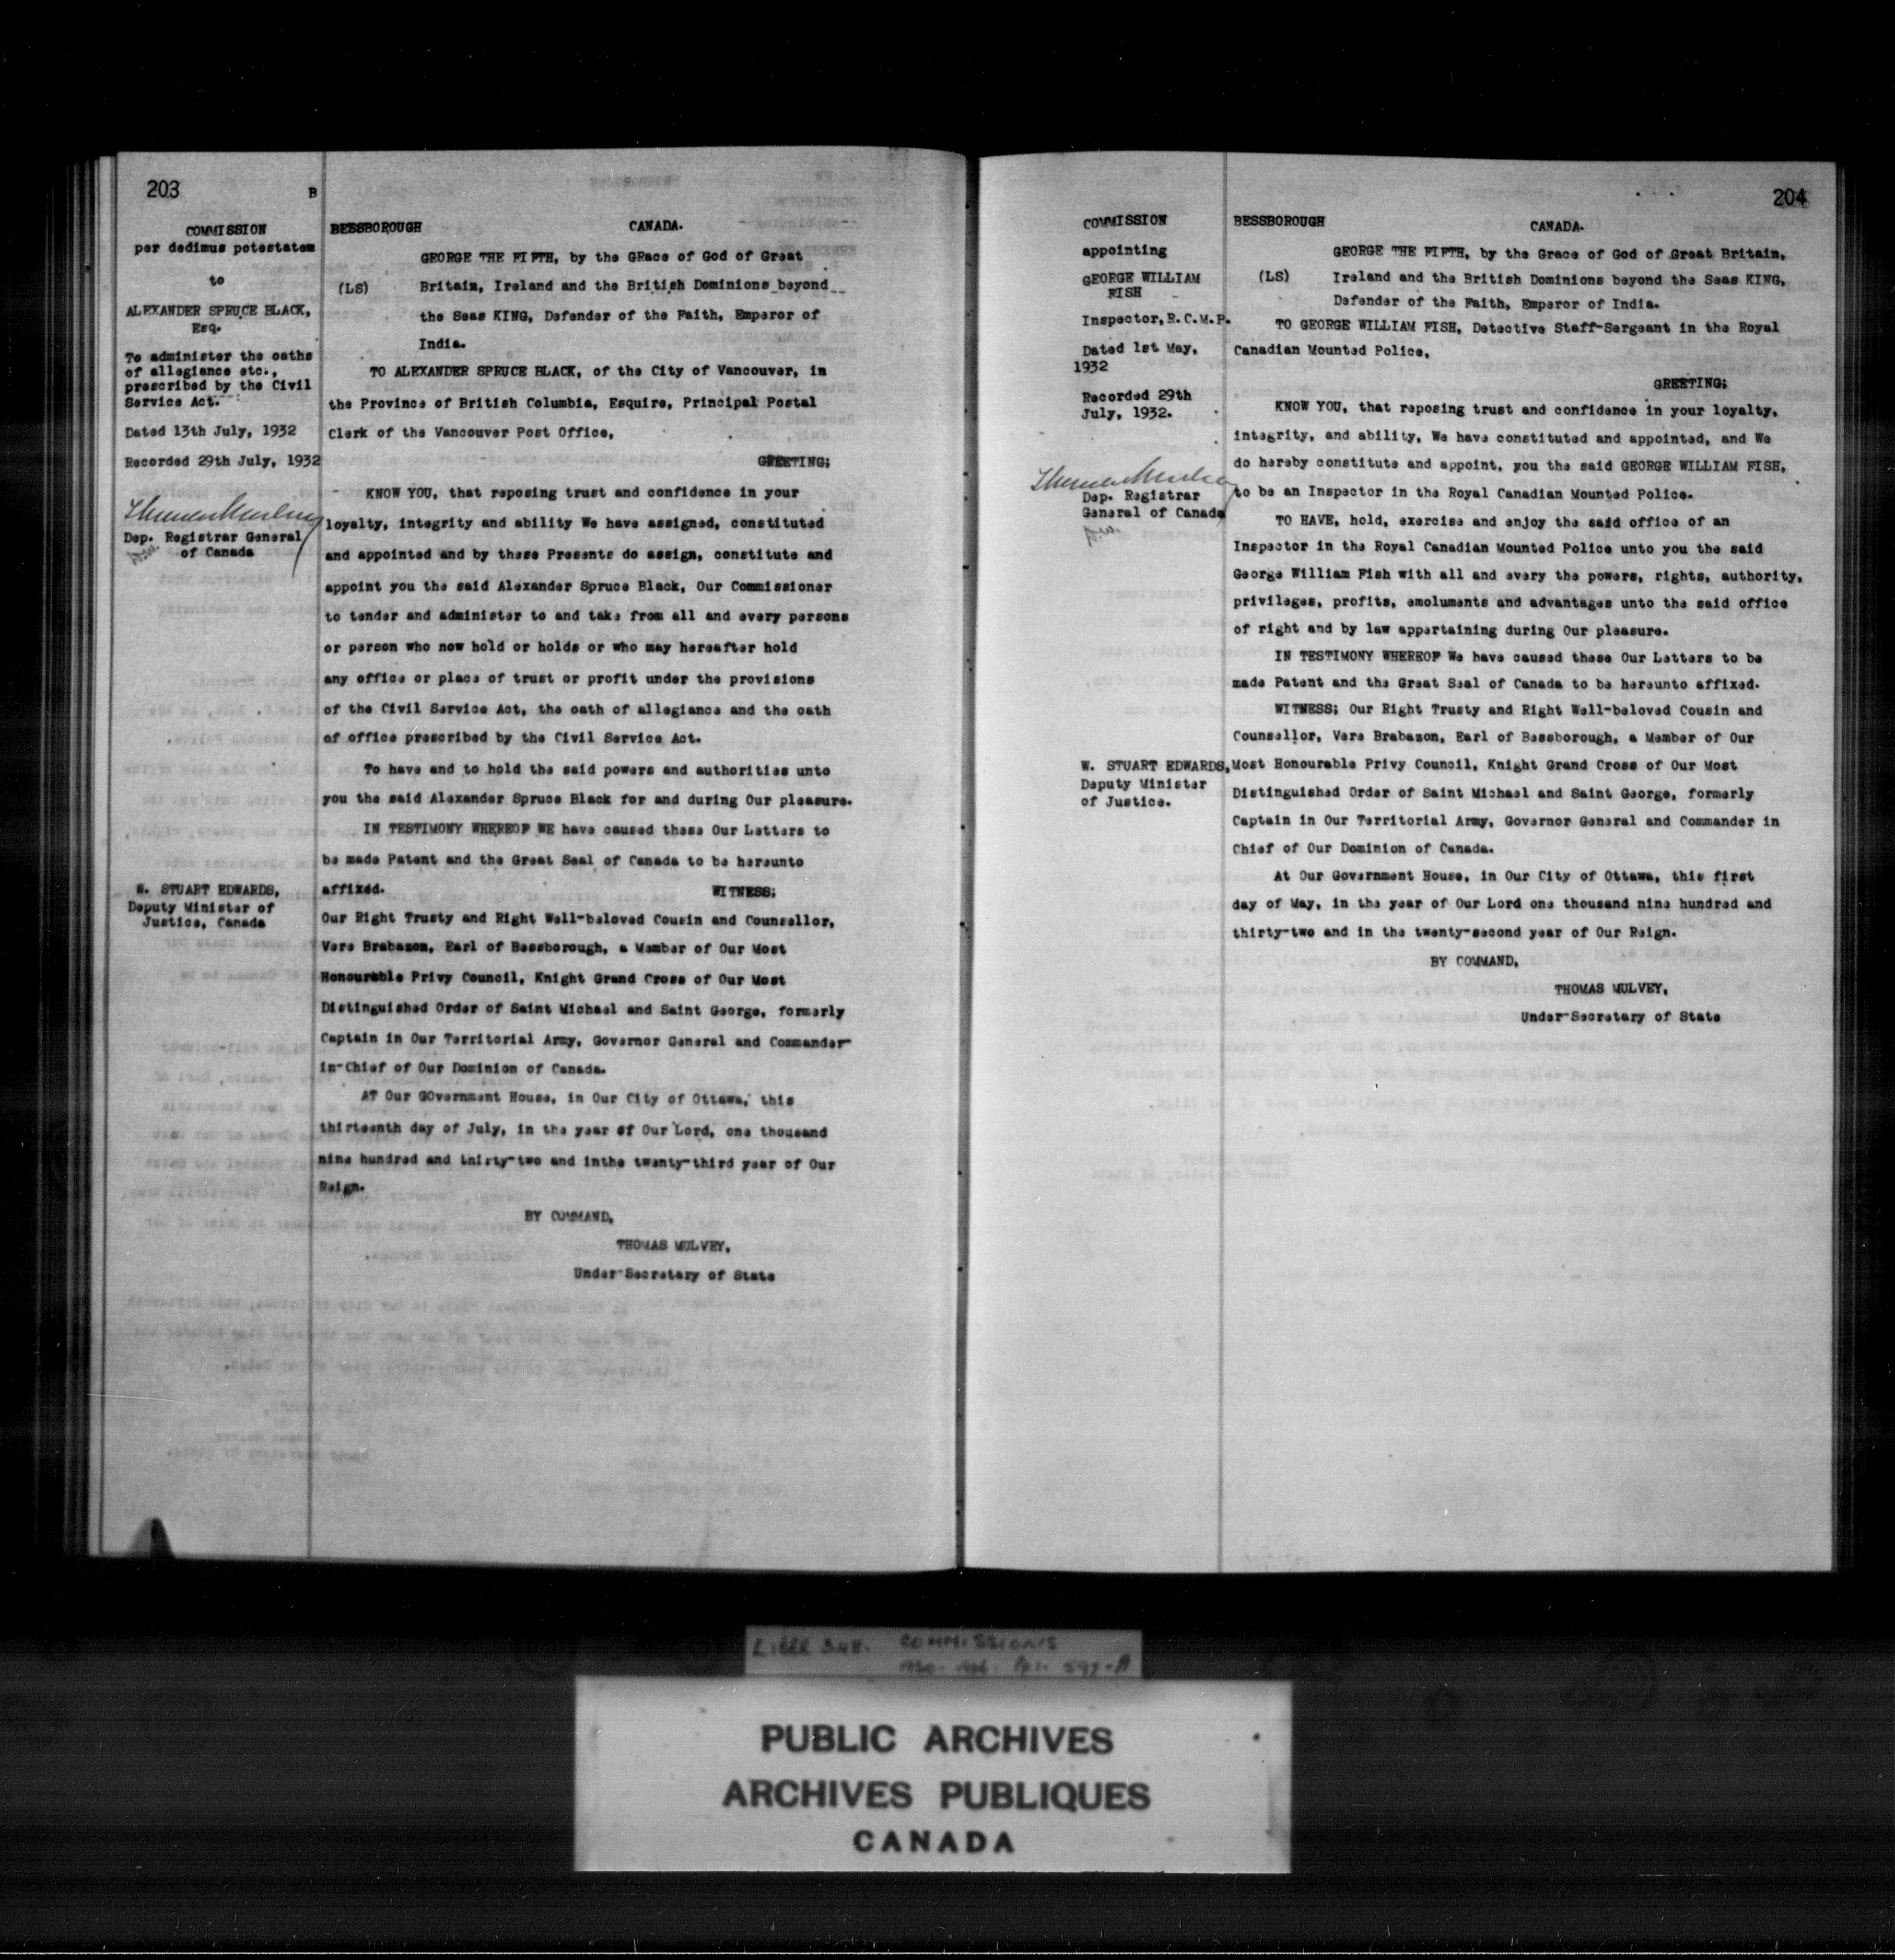 203
B
COMMISSION
per dedimus potestatem
to
ALEXANDER SPRUCE BLACK,
Esq.
To administer the oaths
of allegiance etc.,
prescribed by the Civil
Service Act.
Dated 13th July, 1932
Recorded 29th July, 1932
Dep. Registrar General
of Canada
W. STUART EDWARDS,
Deputy Minister of
Justice, Canada
BESSBOROUGH CANADA.
GEORGE THE FIFTH, by the GRace of God of Great
(LS) Britain, Ireland and the British Dominions beyond
the Seas KING, Defender of the Faith, Emperor of
India.
TO ALEXANDER SPRUCE BLACK, of the City of Vancouver, in
the Province of British Columbia, Esquire, Principal Postal
Clerk of the Vancouver Post Office,
GREETING;
KNOW YOU, that reposing trust and confidence in your
loyalty, integrity and ability We have assigned, constituted
and appointed and by these Presents do assign, constitute and
appoint you the said Alexander Spruce Black, Our Commissioner
to tender and administer to and take from all and every persons
or person who now hold or holds or who may hereafter hold
any office or place of trust or profit under the provisions
of the Civil Service Act, the oath of allegiance and the oath
of office prescribed by the Civil Service Act.
To have and to hold the said powers and authorities unto
you the said Alexander Spruce Black for and during Our pleasure.
IN TESTIMONY WHEREOF WE have caused these Our Letters to
be made Patent and the Great Seal of Canada to be hereunto
affixed. WITNESS;
Our Right Trusty and Right Well-beloved Cousin and Counsellor,
Vere Brabazon, Earl of Bessborough, a Member of Our Most
Honourable Privy Council, Knight Grand Cross of Our Most
Distinguished Order of Saint Michael and Saint George, formerly
Captain in Our Territorial Army, Governor General and Commander-
in-Chief of Our Dominion of Canada.
AT Our GOvernment House, in Our City of Ottawa, this
thirteenth day of July, in the year of Our Lord, one thousand
nine hundred and thirty-two and inthe twenty-third year of Our
Reign.
BY COMMAND,
THOMAS MULVEY,
Under-Secretary of State
204
COMMISSION
appointing
GEORGE WILLIAM
FISH
Inspector, R.C.M.P.
Dated 1st May,
1932
Recorded 29th
July, 1932.
Dep. Registrar
General of Canada
W. STUART EDWARDS,
Deputy Minister
of Justice.
BESSBOROUGH CANADA.
GEORGE THE FIFTH, by the Grace of God of Great Britain,
(LS) Ireland and the British Dominions beyond the Seas KING,
Defender of the Faith, Emperor of India.
TO GEORGE WILLIAM FISH, Detective Staff-Sergeant in the Royal
Canadian Mounted Police,
GREETING;
KNOW YOU, that reposing trust and confidence in your loyalty,
integrity, and ability, We have constituted and appointed, and We
do hereby constitute and appoint, you the said GEORGE WILLIAM FISH,
to be an Inspector in the Royal Canadian Mounted Police.
TO HAVE, hold, exercise and enjoy the said office of an
Inspector in the Royal Canadian Mounted Police unto you the said
George William Fish with all and every the powers, rights, authority,
privileges, profits, emoluments and advantages unto the said office
of right and by law appertaining during Our pleasure.
IN TESTIMONY WHEREOF We have caused these Our Letters to be
made Patent and the Great Seal of Canada to be hereunto affixed.
WITNESS; Our Right Trusty and Right Well-beloved Cousin and
Counsellor, Vere Brabazon, Earl of Bessborough, a Member of Our
Most Honourable Privy Council, Knight Grand Cross of Our Most
Distinguished Order of Saint Michael and Saint George, formerly
Captain in Our Territorial Army, Governor General and Commander in
Chief of Our Dominion of Canada.
At Our Government House, in Our City of Ottawa, this first
day of May, in the year of Our Lord one thousand nine hundred and
thirty-two and in the twenty-second year of Our Reign.
BY COMMAND,
THOMAS MULVEY,
Under-Secretary of State
LIBER 348. COMMISSIONS
PUBLIC ARCHIVES
ARCHIVES PUBLIQUES
CANADA